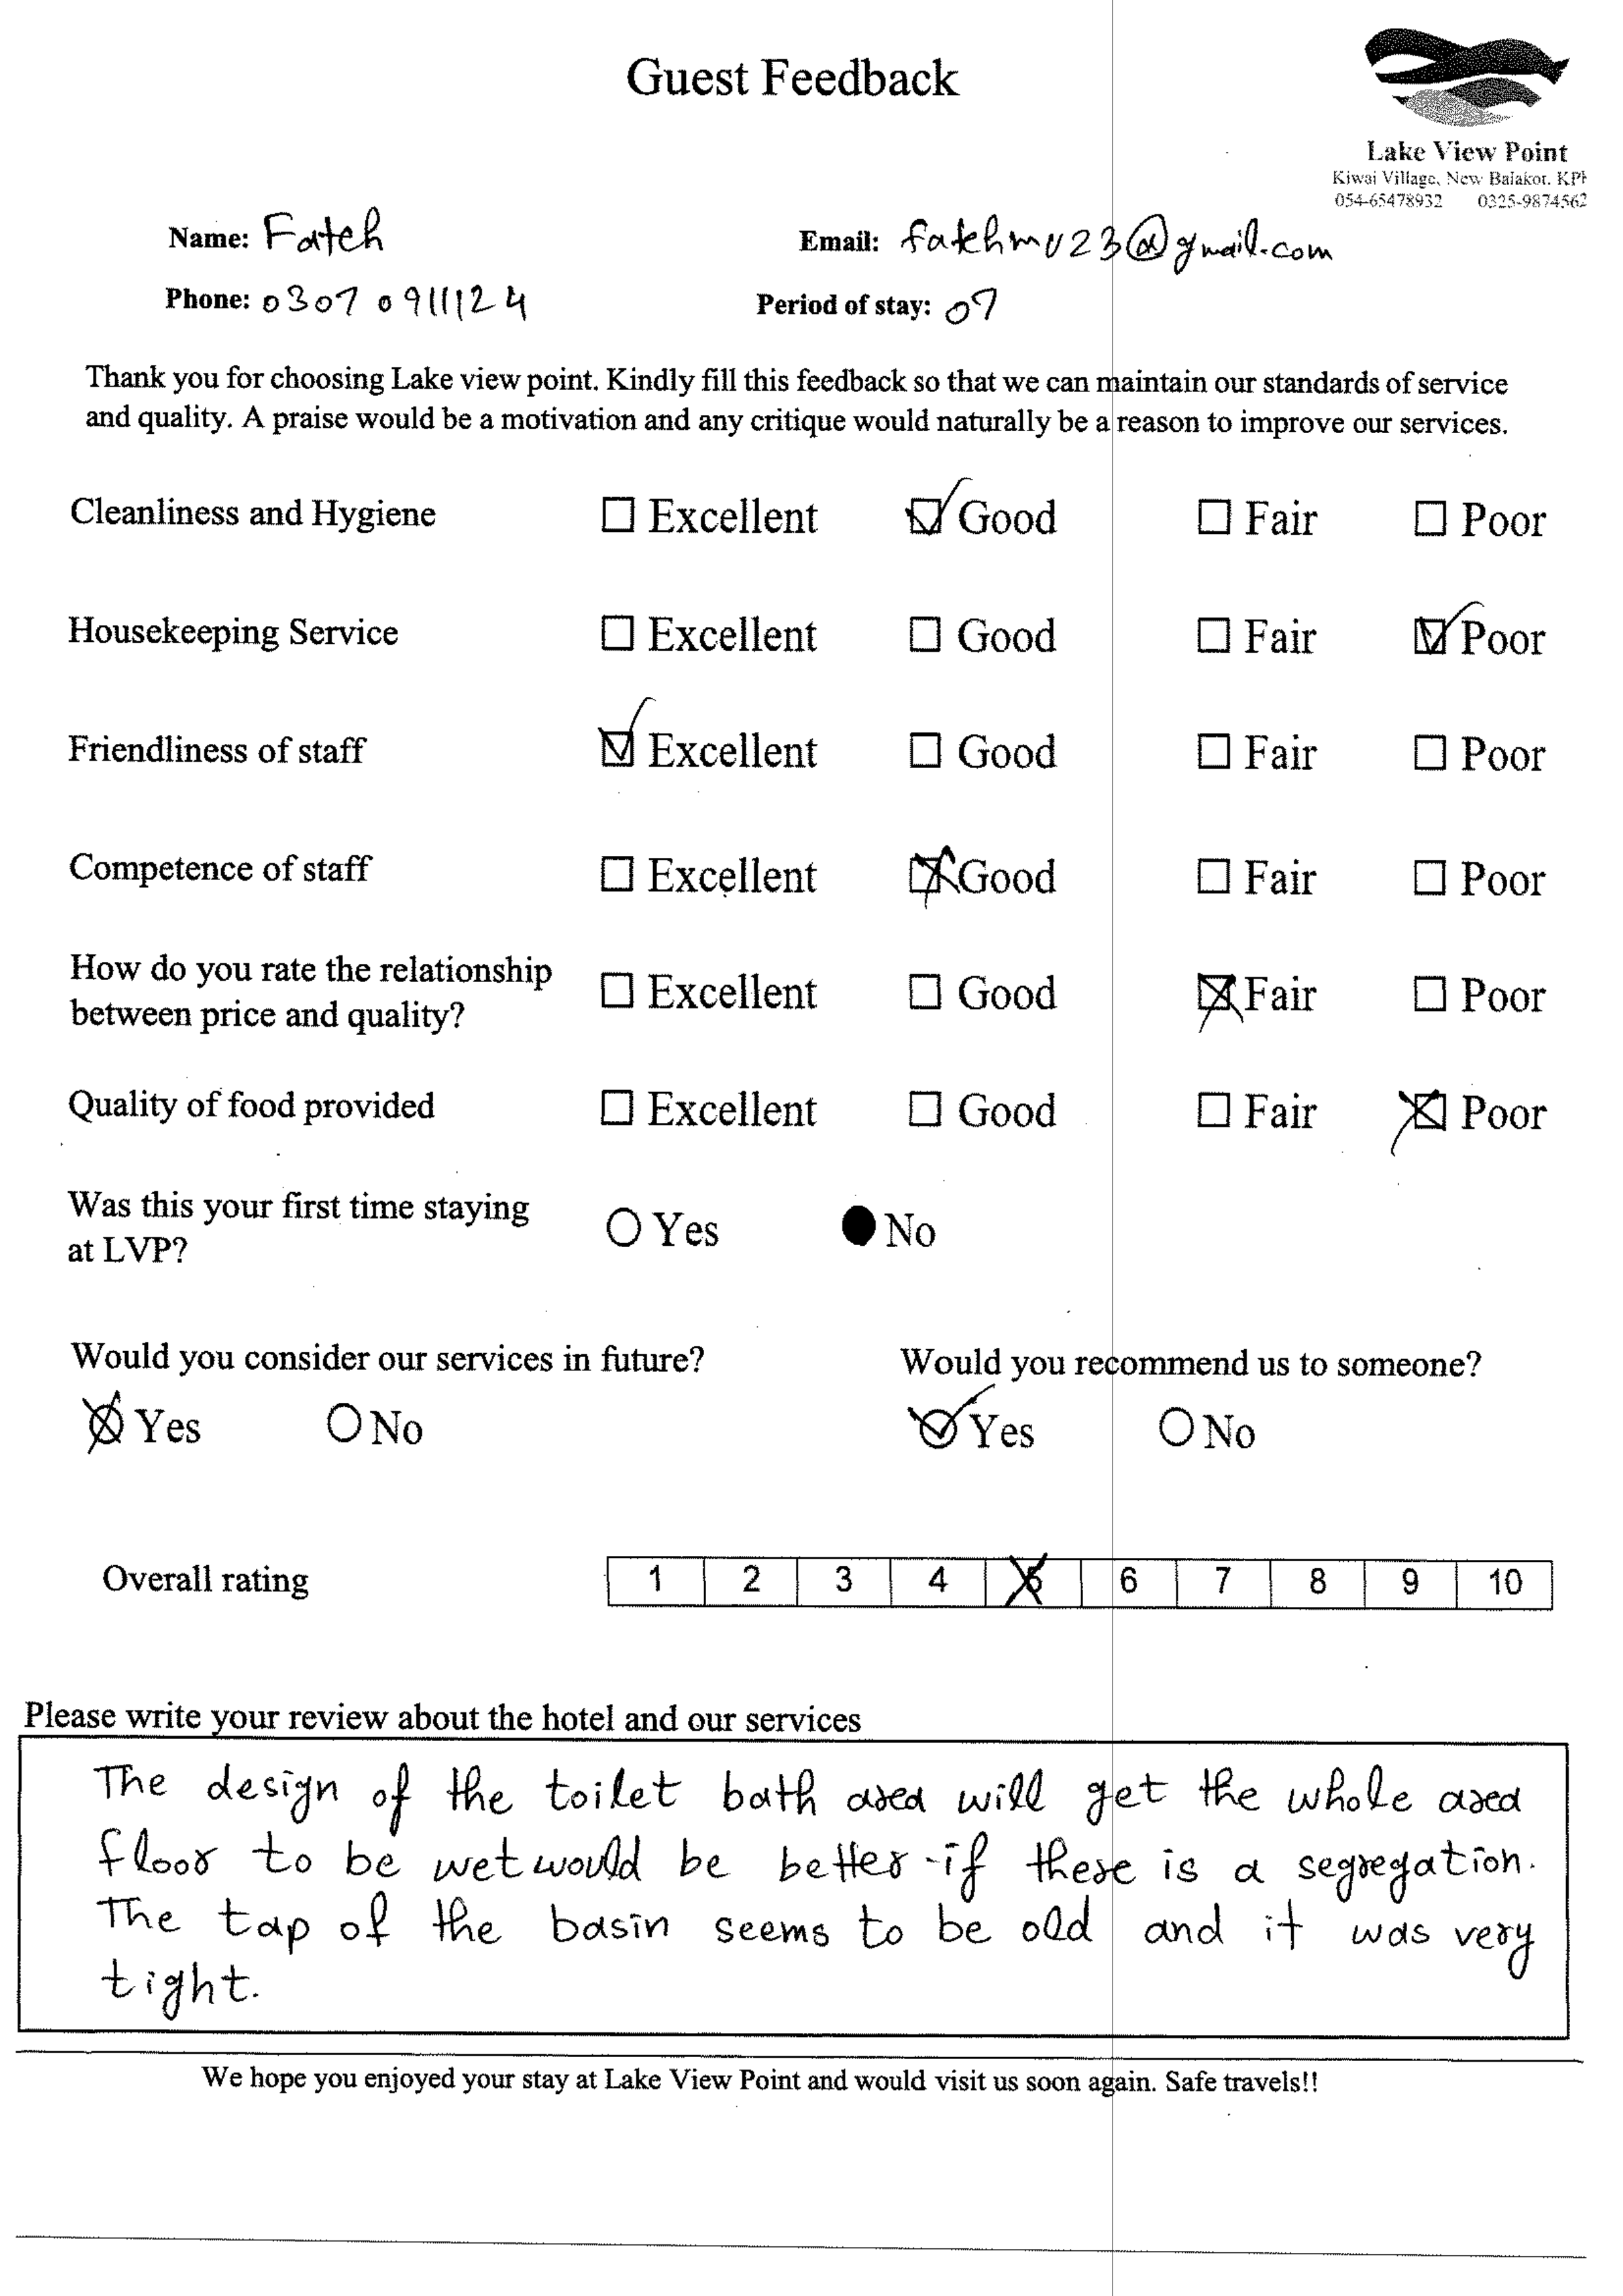 Guest Feedback
Lake View Point
Kiwai Village, New Balakot. KPK
054-65478932 0325-9874562
Name: Fateh
Email: fatehmu23@gmail.com
Phone: 0307 0911124
Period of stay: 07
Thank you for choosing Lake view point. Kindly fill this feedback so that we can maintain our standards of service
and quality. A praise would be a motivation and any critique would naturally be a reason to improve our services.
Cleanliness and Hygiene ☐ Excellent ☑ Good ☐ Fair ☐ Poor
Housekeeping Service ☐ Excellent ☐ Good ☐ Fair ☑ Poor
Friendliness of staff ☑ Excellent ☐ Good ☐ Fair ☐ Poor
Competence of staff ☐ Excellent ☒ Good ☐ Fair ☐ Poor
How do you rate the relationship
between price and quality? ☐ Excellent ☐ Good ☒ Fair ☐ Poor
Quality of food provided ☐ Excellent ☐ Good ☐ Fair ☒ Poor
Was this your first time staying
at LVP? ○ Yes ● No
Would you consider our services in future? Would you recommend us to someone?
☒ Yes ○ No ☑ Yes ○ No
Overall rating 1 2 3 4 5 6 7 8 9 10
Please write your review about the hotel and our services
The design of the toilet bath area will get the whole area
floor to be wet would be better if there is a segregation.
The tap of the basin seems to be old and it was very
tight.
We hope you enjoyed your stay at Lake View Point and would visit us soon again. Safe travels!!